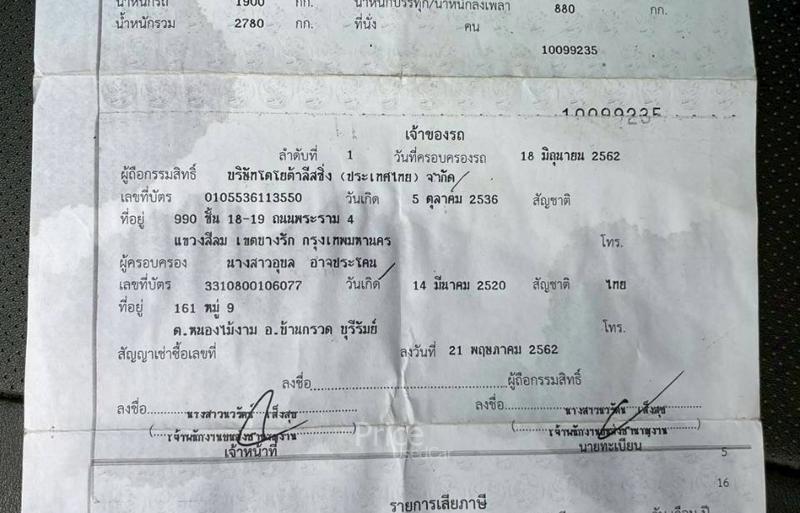 น้ำหนักรถ 1900 กก. น้ำหนักบรรทุก/น้ำหนักลงเพลา 880 กก.
น้ำหนักรวม 2780 กก. ที่นั่ง คน
10099235
10099235
เจ้าของรถ
ลำดับที่ 1 วันที่ครอบครองรถ 18 มิถุนายน 2562
ผู้ถือกรรมสิทธิ์ บริษัทโตโยต้าลีสซิ่ง (ประเทศไทย) จำกัด
เลขที่บัตร 0105536113550 วันเกิด 5 ตุลาคม 2536 สัญชาติ
ที่อยู่ 990 ชั้น 18-19 ถนนพระราม 4
แขวงสีลม เขตบางรัก กรุงเทพมหานคร โทร.
ผู้ครอบครอง นางสาวอุบล อาจประโคน
เลขที่บัตร 3310800106077 วันเกิด 14 มีนาคม 2520 สัญชาติ ไทย
ที่อยู่ 161 หมู่ 9
ต.หนองไม้งาม อ.บ้านกรวด บุรีรัมย์ โทร.
สัญญาเช่าซื้อเลขที่ ลงวันที่ 21 พฤษภาคม 2562
ลงชื่อ ผู้ถือกรรมสิทธิ์
ลงชื่อ นางสาวนวรัตน์ เส็งสุข ลงชื่อ นางสาวนวรัตน์ เส็งสุข
(เจ้าพนักงานขนส่งชำนาญงาน) (เจ้าพนักงานขนส่งชำนาญงาน)
เจ้าหน้าที่ นายทะเบียน 5
Price
UsedCar
16
รายการเสียภาษี